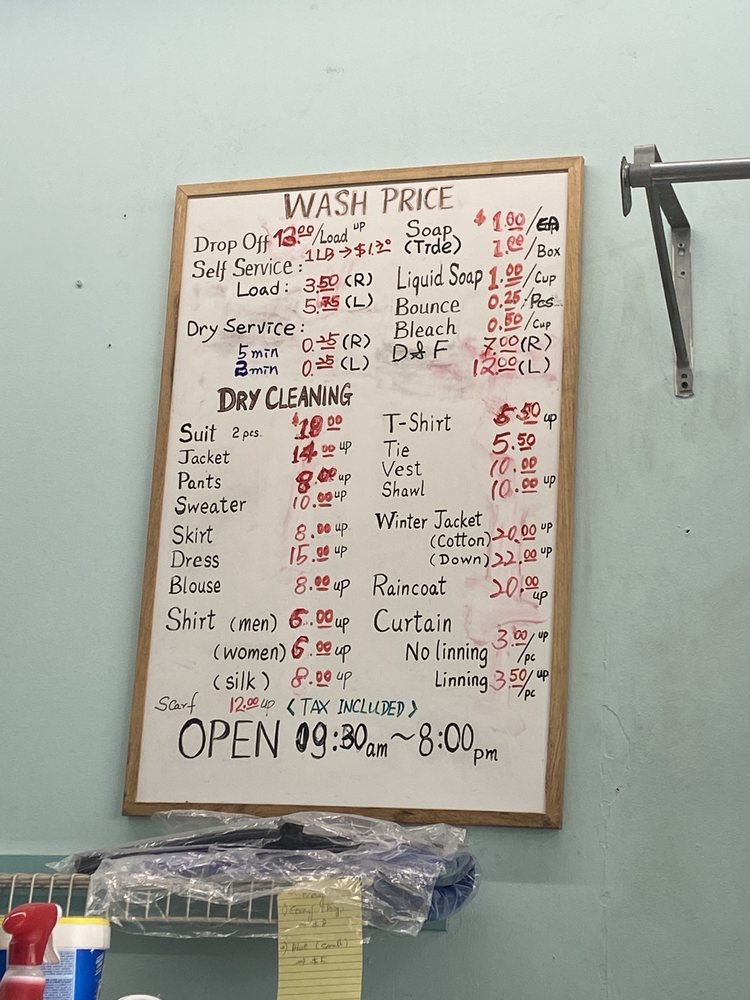 WASH PRICE
Drop Off 13.00/Load up
1 LB → $1.30
Self Service:
Load: 3.50 (R)
5.75 (L)
Dry Service:
5 min 0.25 (R)
2 min 0.25 (L)
Soap $1.00/EA
(Trde) 1.00/Box
Liquid Soap 1.00/Cup
Bounce 0.25/Pcs
Bleach 0.50/Cup
D&F 7.00 (R)
12.00 (L)
DRY CLEANING
Suit 2 pcs. $18.00
Jacket 14.00 up
Pants 8.00 up
Sweater 10.00 up
Skirt 8.00 up
Dress 15.00 up
Blouse 8.00 up
Shirt (men) 6.00 up
(women) 6.00 up
(silk) 8.00 up
Scarf 12.00 up
T-Shirt 5.50 up
Tie 5.50
Vest 10.00
Shawl 10.00 up
Winter Jacket
(Cotton) 20.00 up
(Down) 22.00 up
Raincoat 20.00 up
Curtain
No linning 3.00/pc up
Linning 3.50/pc up
< TAX INCLUDED >
OPEN 09:30am ~ 8:00pm